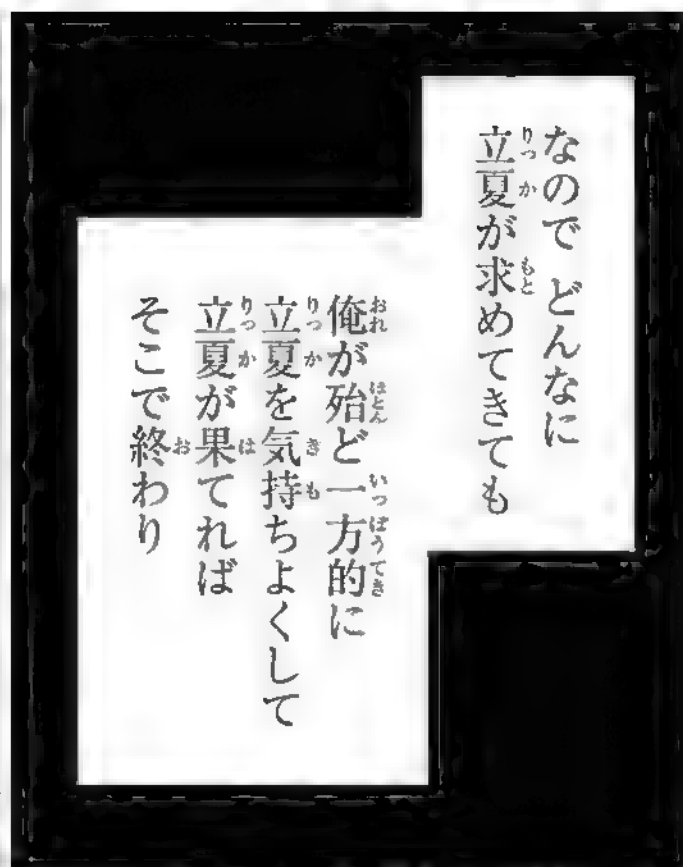 なので どんなに
立夏が求めてきても
俺が殆ど一方的に
立夏を気持ちよくして
立夏が果てれば
そこで終わり